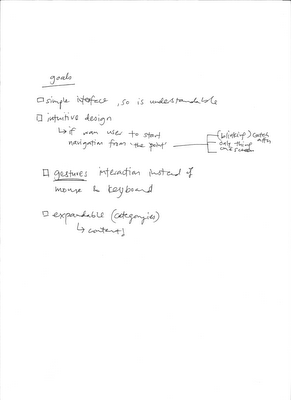 goals
□ simple interface, so is understandable
□ intuitive design
↳ if wan user to start
navigation from 'the point'
(blinking) catch
only thing
one screen
□ gestures interaction instead of
mouse & keyboard
□ expandable (categories)
↳ contents